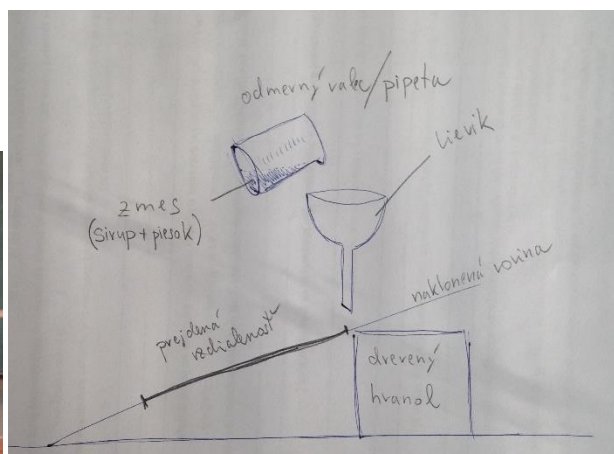 odmerný valec/pipeta
lievik
zmes
(sirup+piesok)
naklonená rovina
prejdená
vzdialenosť
drevený
hranol